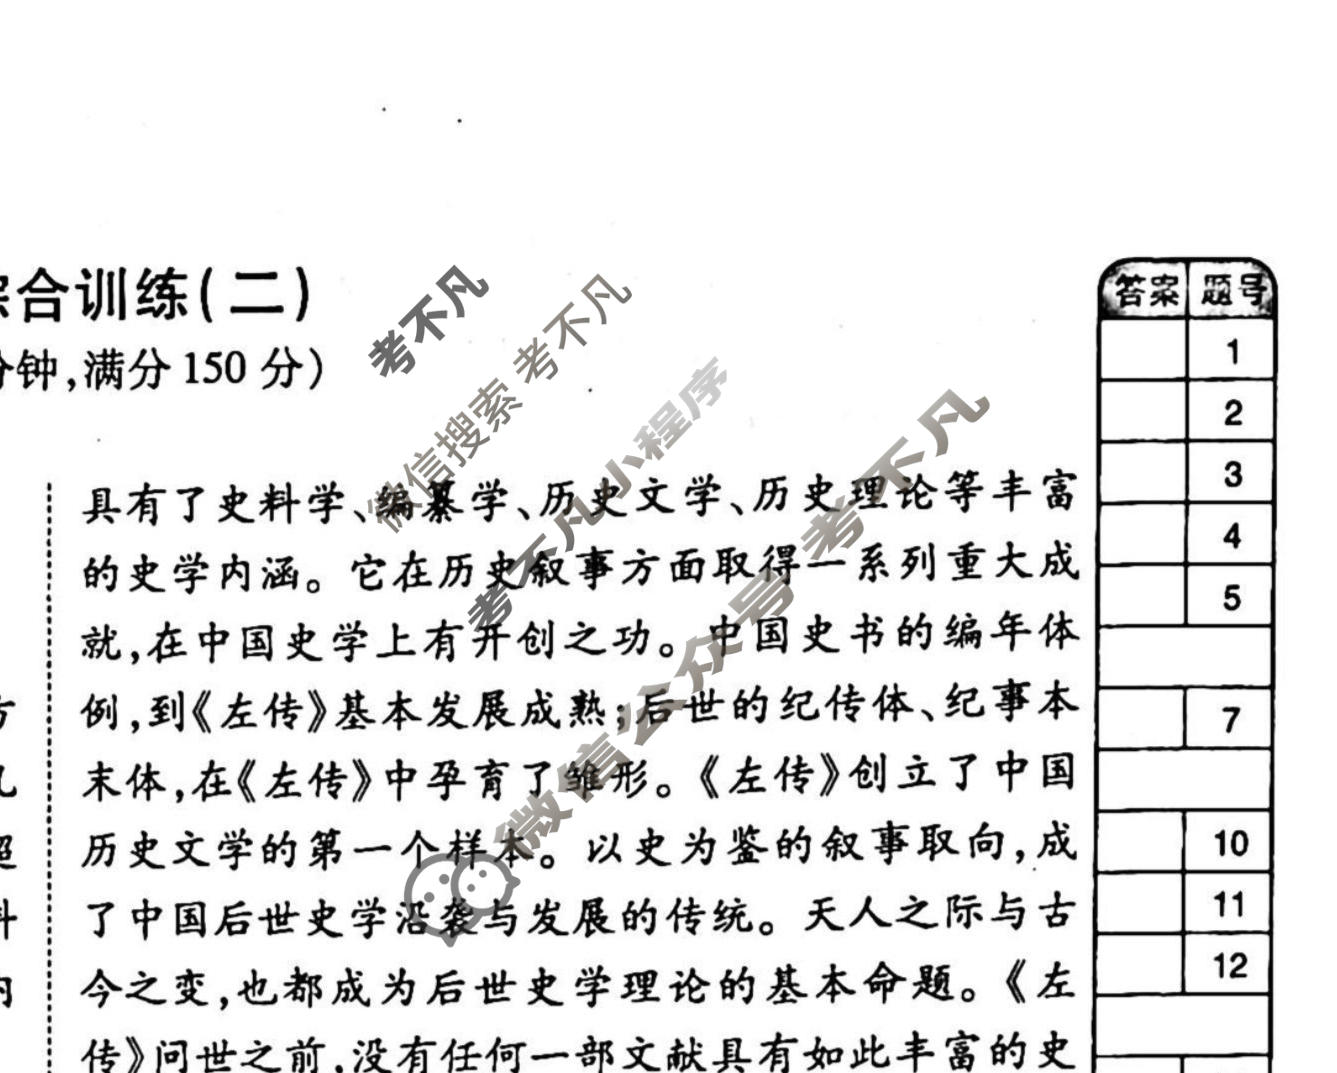 综合训练(二)
分钟,满分150分)
具有了史料学、编纂学、历史文学、历史理论等丰富
的史学内涵。它在历史叙事方面取得一系列重大成
就,在中国史学上有开创之功。中国史书的编年体
例,到《左传》基本发展成熟;后世的纪传体、纪事本
末体,在《左传》中孕育了雏形。《左传》创立了中国
历史文学的第一个样本。以史为鉴的叙事取向,成
了中国后世史学沿袭与发展的传统。天人之际与古
今之变,也都成为后世史学理论的基本命题。《左
传》问世之前,没有任何一部文献具有如此丰富的史
答案 题号
1
2
3
4
5
7
10
11
12
考不凡
微信搜索 考不凡
考不凡小程序
微信公众号 考不凡